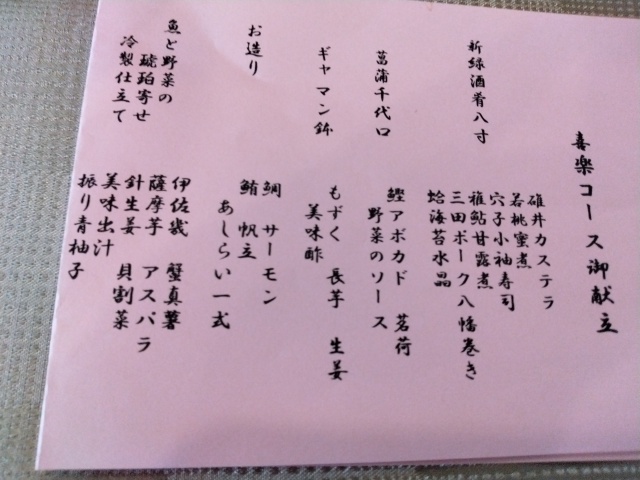 喜楽コース御献立
新緑酒肴八寸
碓井カステラ
若桃蜜煮
穴子小袖寿司
稚鮎甘露煮
三田ポーク八幡巻き
蛤海苔水晶
菖蒲千代口
鰹アボカド 茗荷
野菜のソース
ギヤマン鉢
もずく 長芋 生姜
美味酢
お造り
鯛 サーモン
鮪 帆立
あしらい一式
魚と野菜の
琥珀寄せ
冷製仕立て
伊佐幾 蟹真薯
薩摩芋 アスパラ
針生姜 貝割菜
美味出汁
振り青柚子